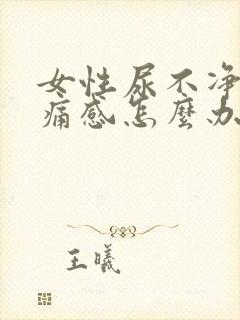 女性尿不净
痛感怎麽办
王曦